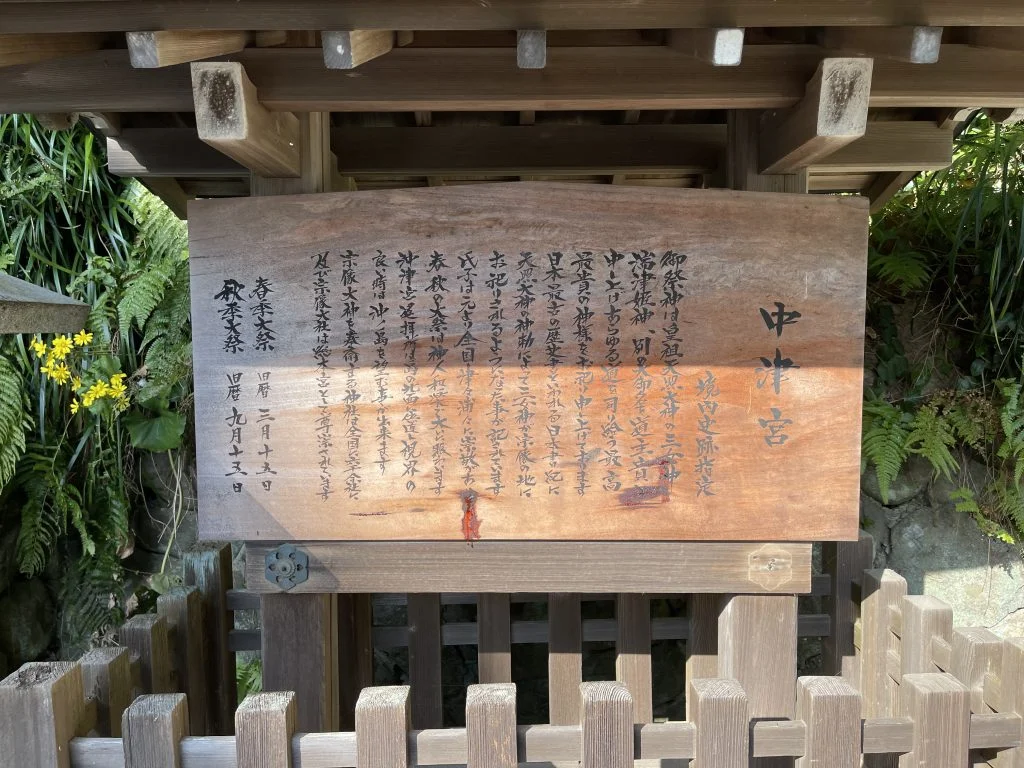 中津宮
境内史跡指定
御祭神は皇祖天照大神の三女神
湍津姫神、別異命を道主貴
申し上げあらゆる道を司り給う最高
最貴の神様をお祀り申し上げて居ります
日本最古の歴史書といわれる日本書紀に
天照大神の神勅によって三女神が宗像の地に
お祀りされるようになった事が記されています
氏子は元より全国津々浦々に崇敬
春秋の大祭は神人相共に大いに賑わいます
沖津宮遥拝所は島の西岸道
良い時は沖ノ島を拝む事が出来ます
宗像大神を奉斎する神社は全国に六千余社に
及び宗像大社は総本宮として尊崇されています
春季大祭 旧暦 三月十五日
秋季大祭 旧暦 九月十五日